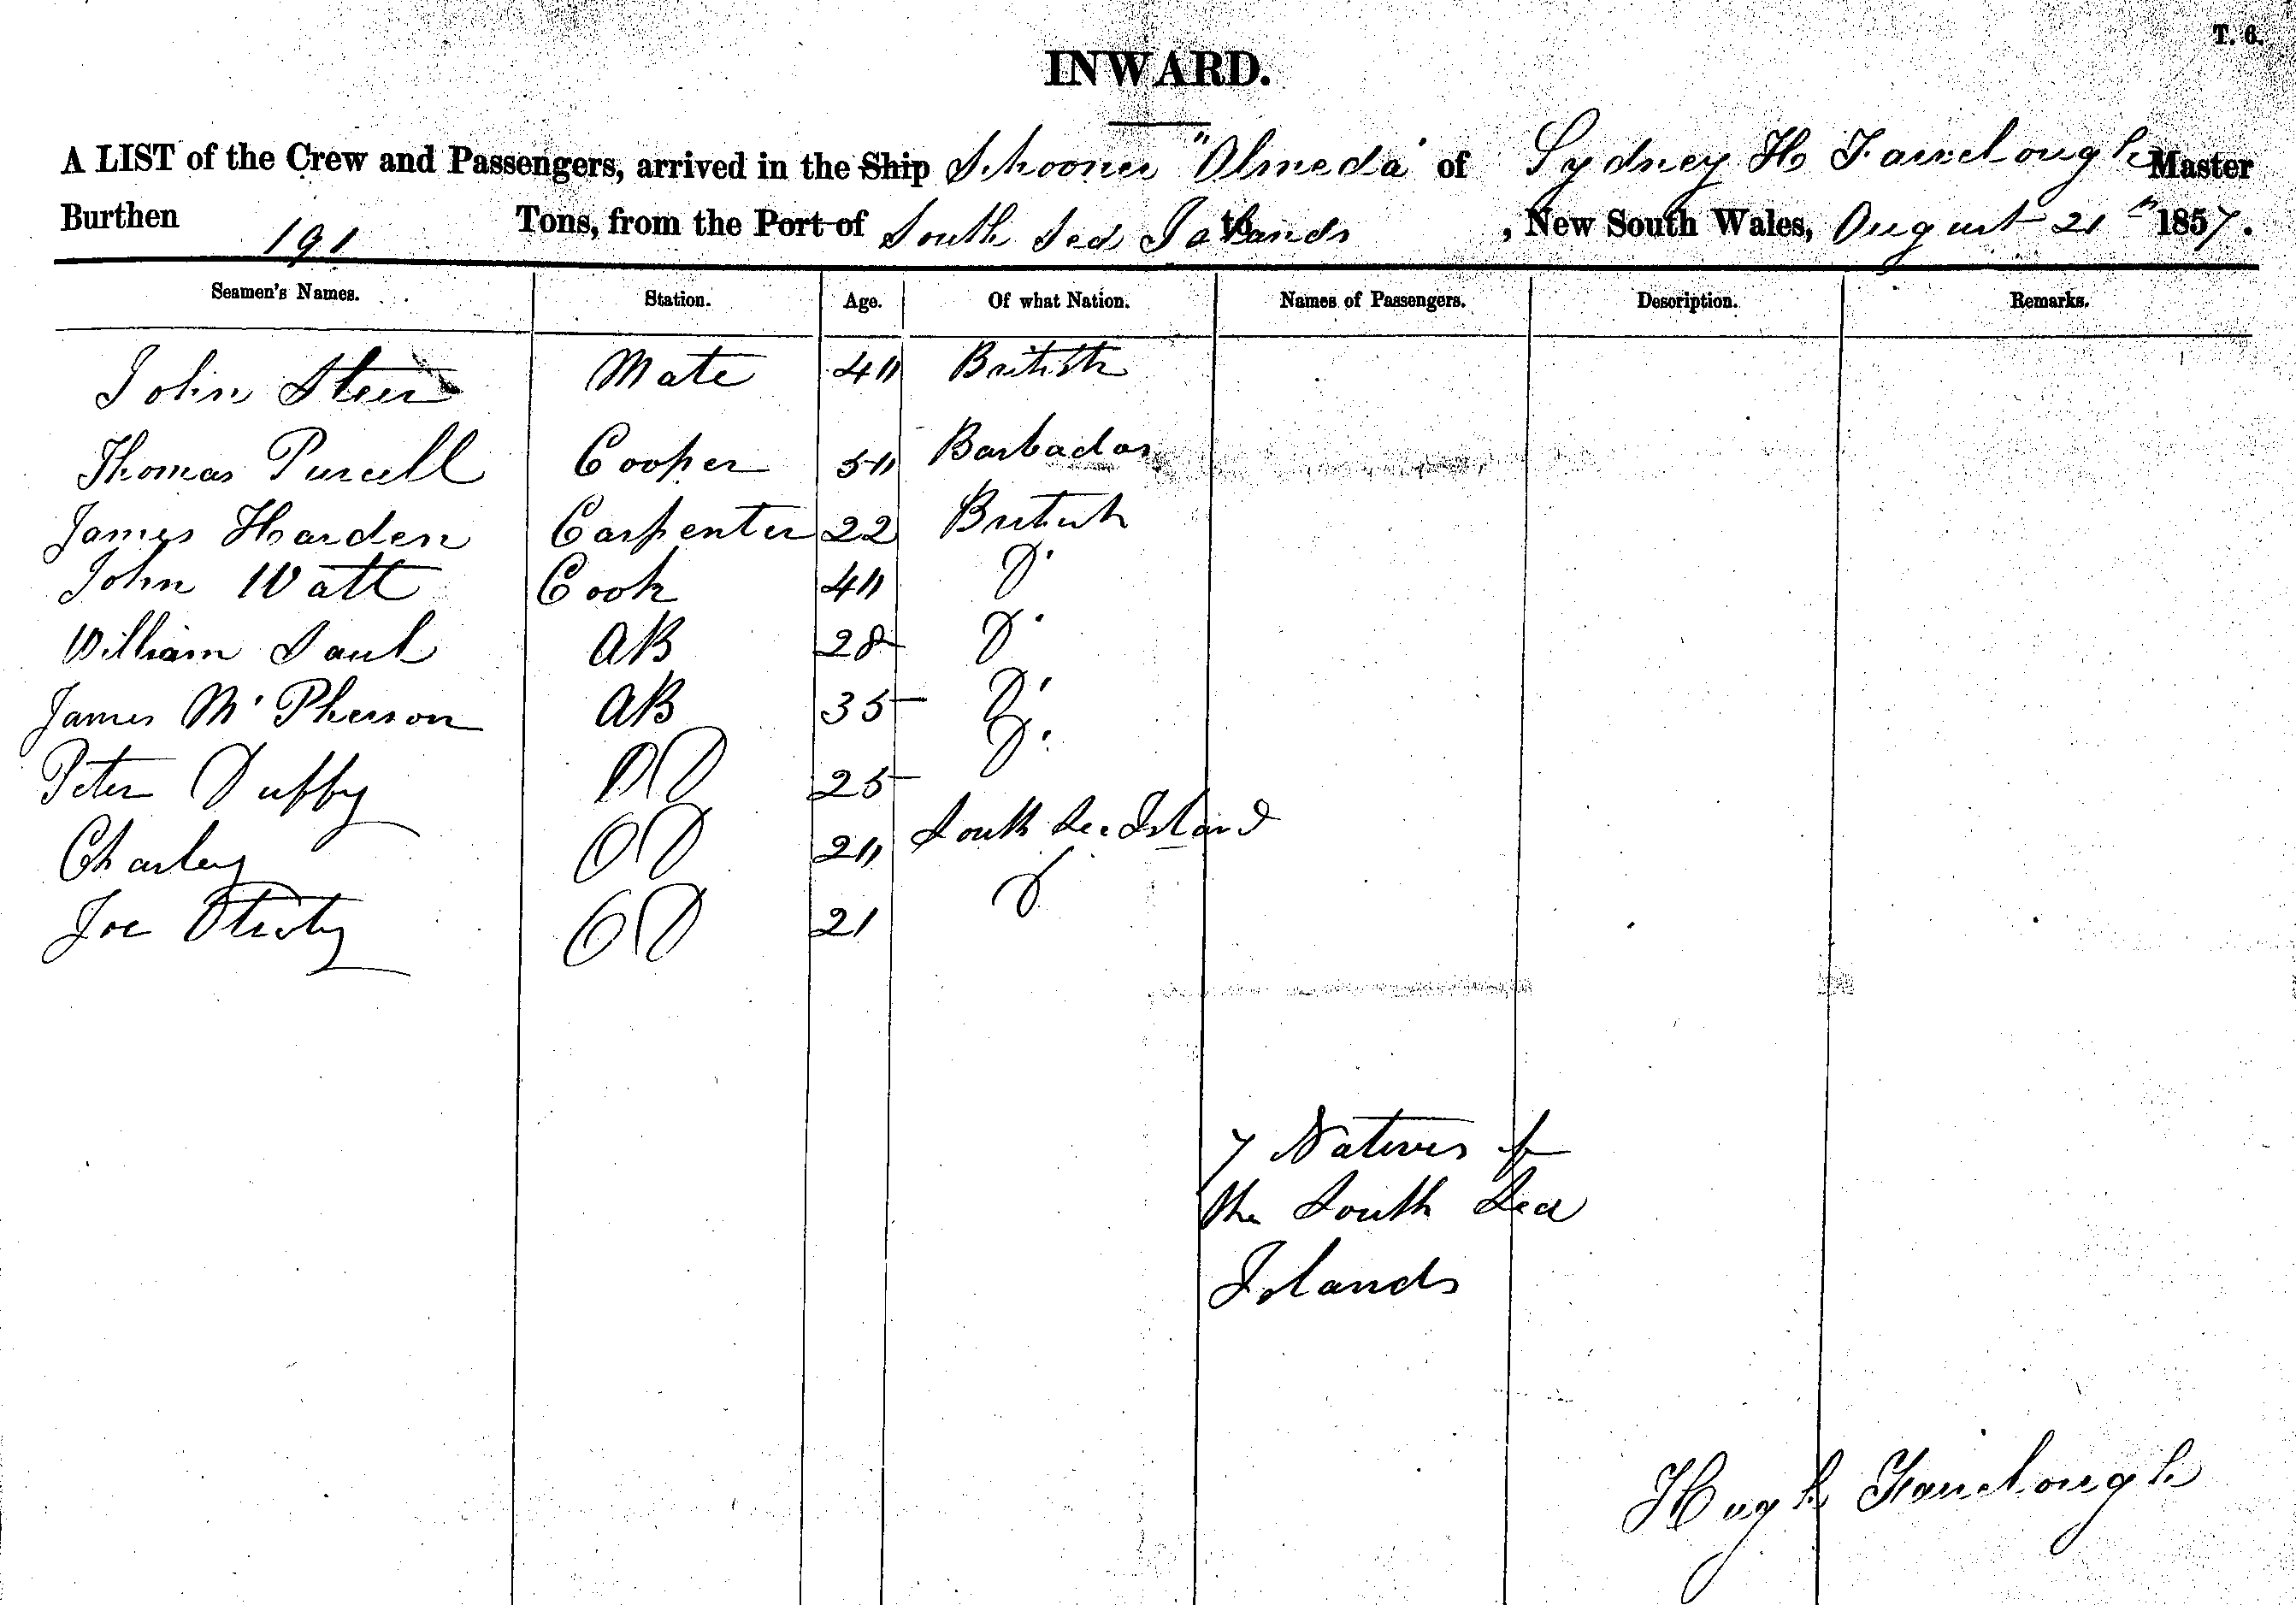 T. 6.
INWARD.
A LIST of the Crew and Passengers, arrived in the Ship Schooner "Olmeda" of Sydney H Fairclough Master
Burthen 191 Tons, from the Port of South Sea Islands to , New South Wales, August 21st 1857.
Seamen's Names. Station. Age. Of what Nation. Names of Passengers. Description. Remarks.
John Mate 40 British
Thomas Purcell Cooper 50 Barbados
James Harden Carpenter 22 British
John Watt Cook 40 Do
William Saul AB 28 Do
James McPherson AB 35 Do
Peter Duffy OD 25 Do
Charley OD 20 South Sea Island
Joe OD 21 Do
7 Natives of
the South Sea
Islands
Hugh Fairclough